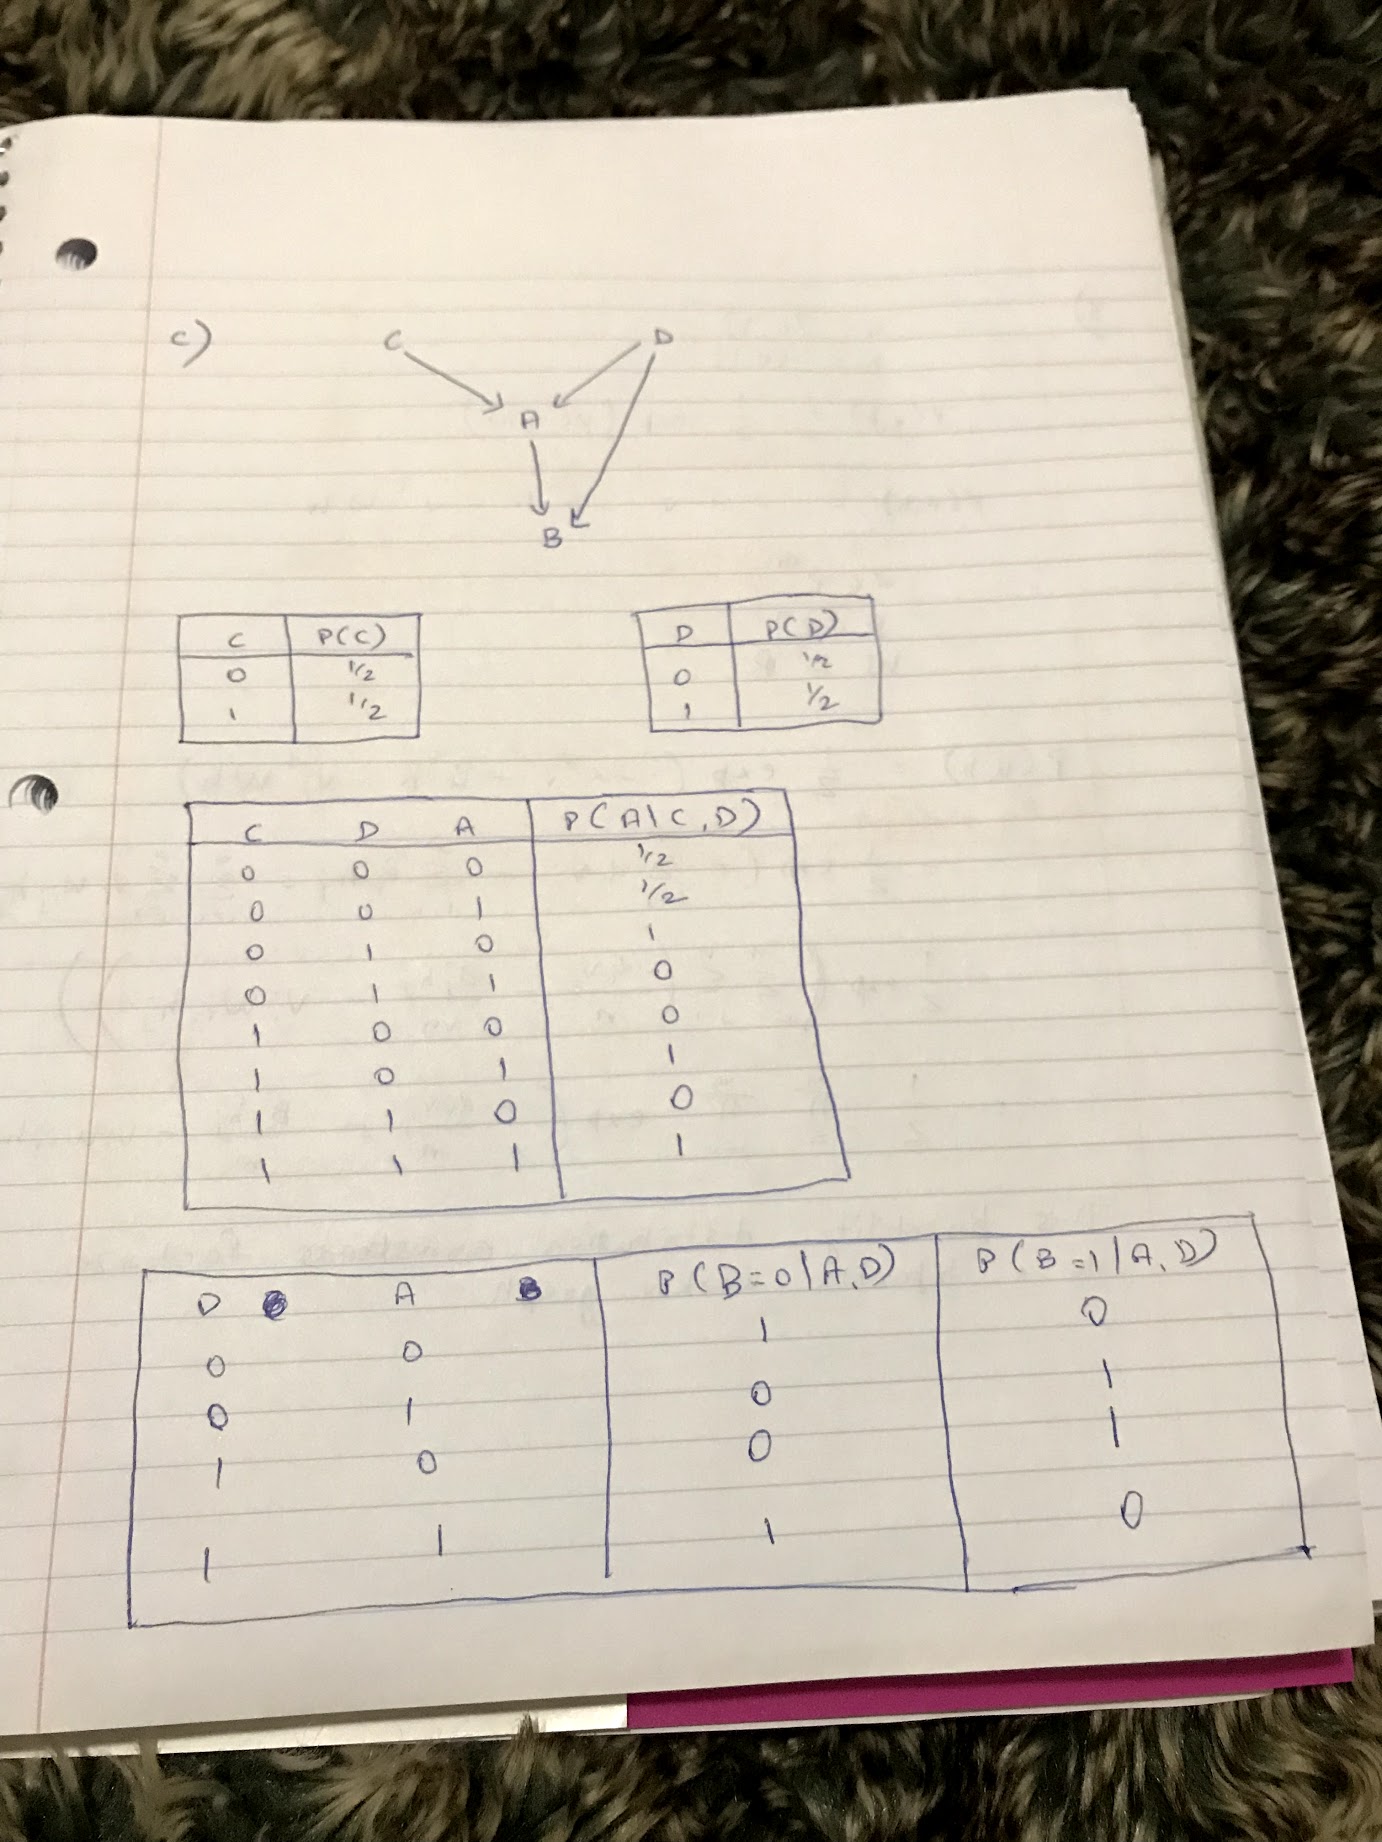 c)
C D
A
B
C P(C)
0 1/2
1 1/2
D P(D)
0 1/2
1 1/2
C D A P(A|C,D)
0 0 0 1/2
0 0 1 1/2
0 1 0 1
0 1 1 0
1 0 0 0
1 0 1 1
1 1 0 0
1 1 1 1
D A P(B=0|A,D) P(B=1|A,D)
0 0 1 0
0 1 0 1
1 0 0 1
1 1 1 0